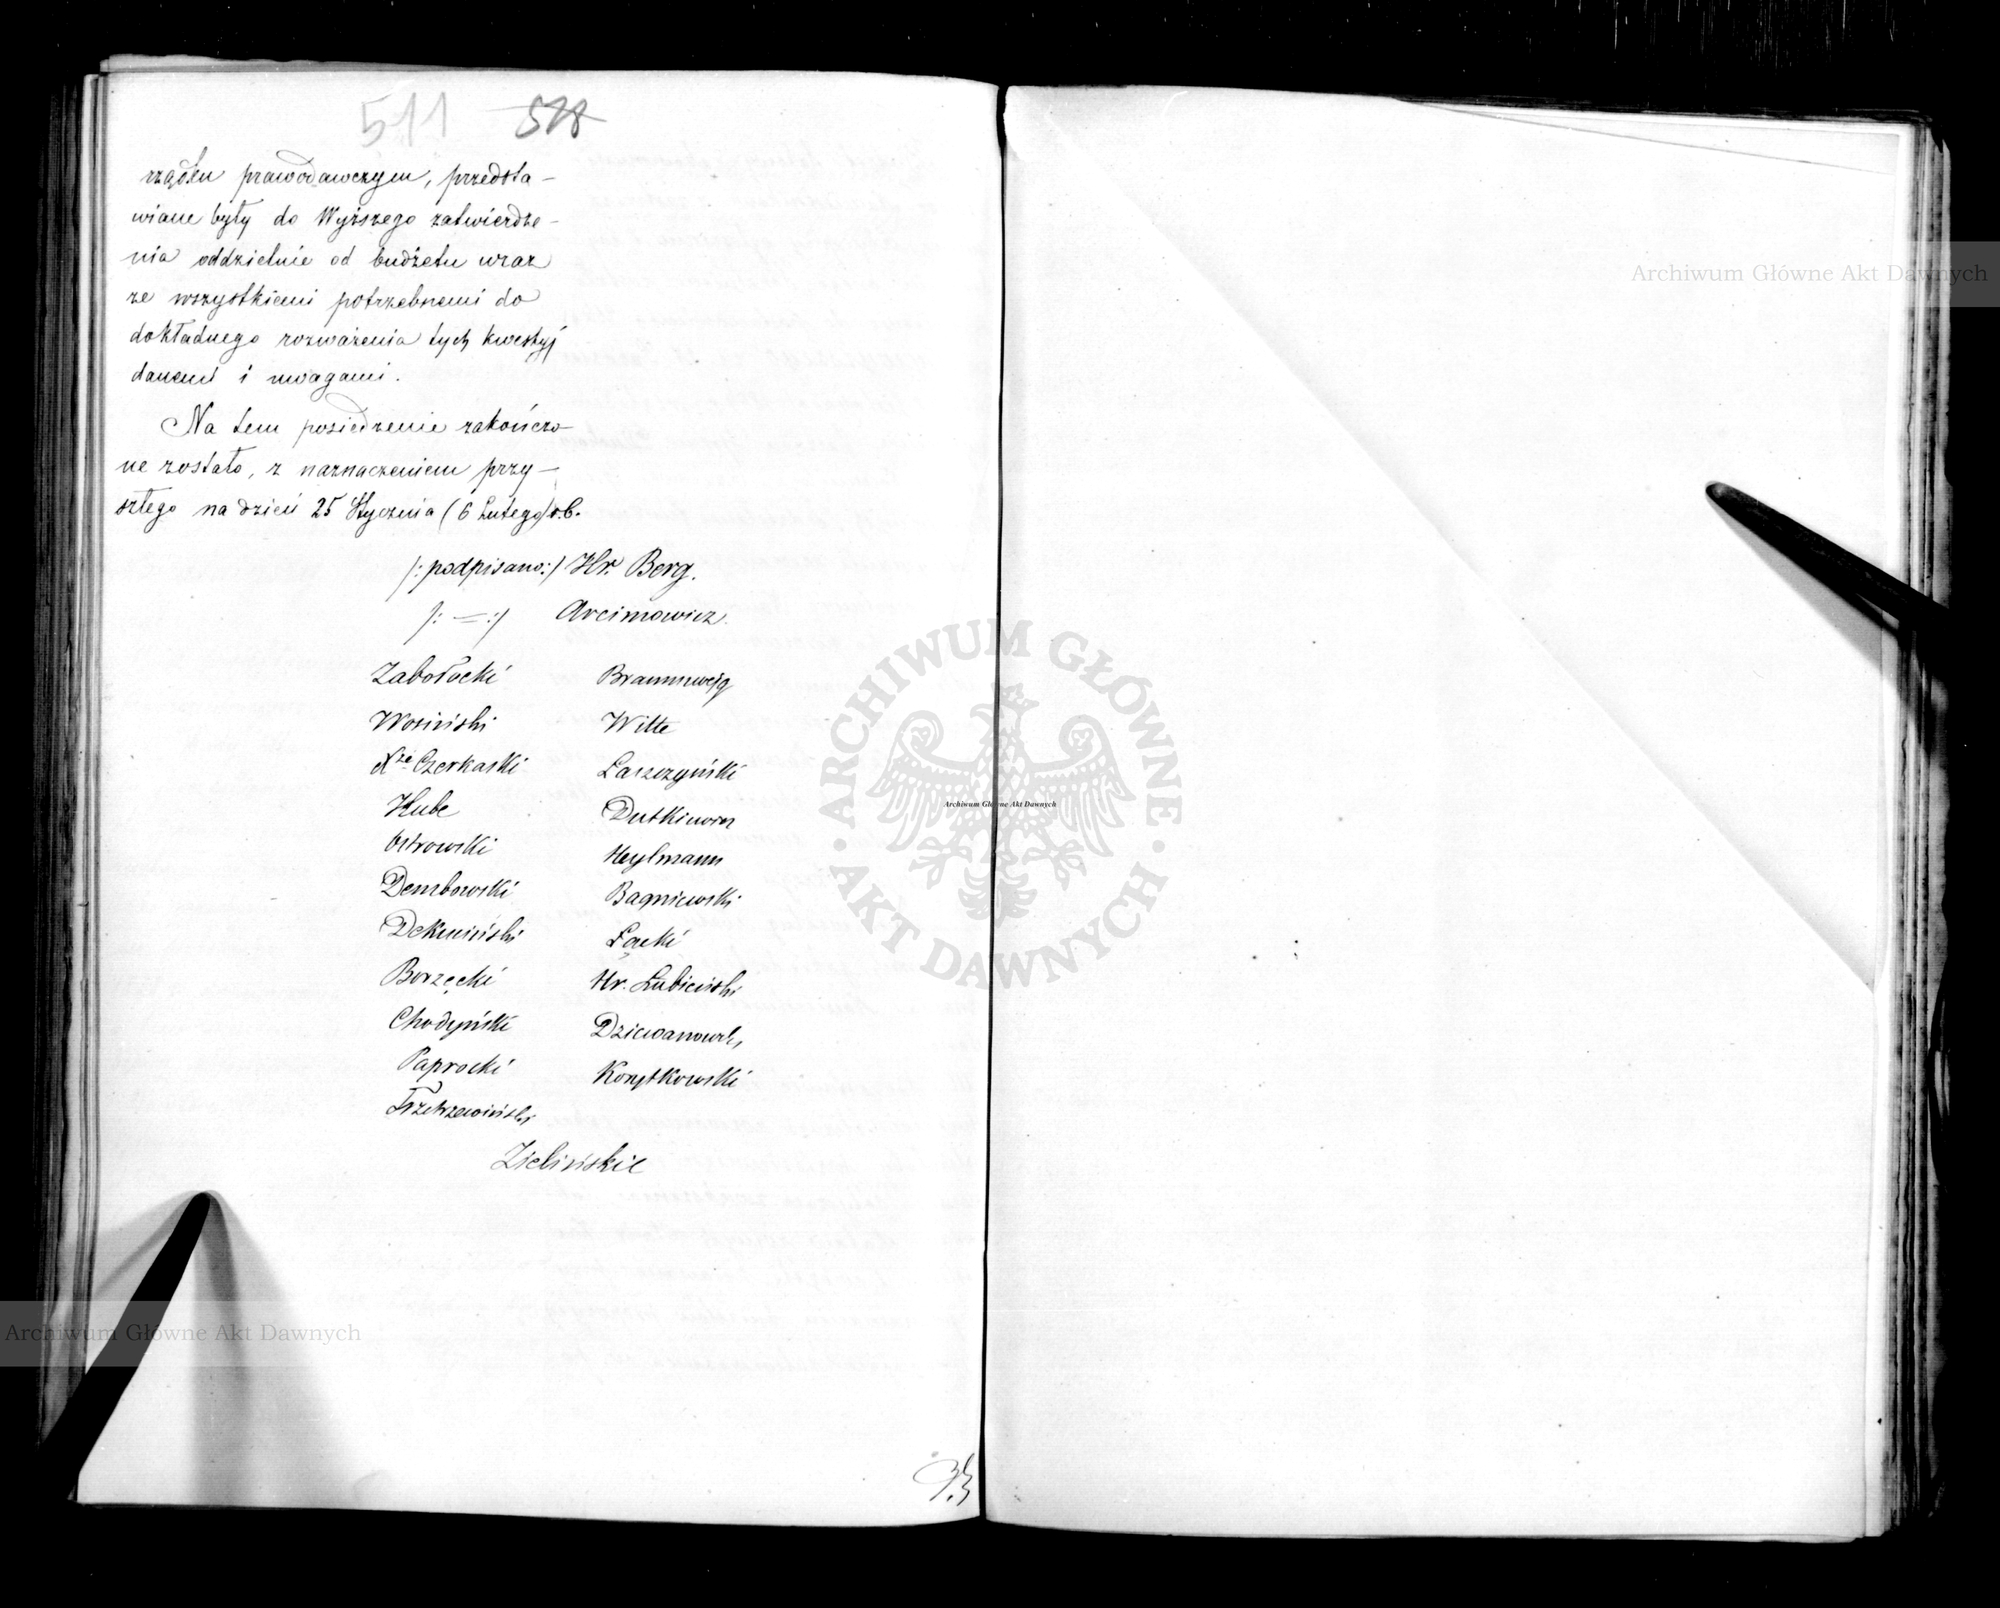 511 518
rządku prawodawczym, przedsta-
wiane były do Wyższego zatwierdze-
nia oddzielnie od budżetu wraz
ze wszystkiemi potrzebnemi do
dokładnego rozważenia tych kwestyj
danemi i uwagami.
Na tem posiedzenie zakończo-
ne zostało, z naznaczeniem przy-
szłego na dzień 25 Stycznia (6 Lutego) r.b.
/:podpisano:/ Hr. Berg.
/: = :/ Arcimowicz.
Zabołocki Braunszwejg
Wosiński Witte
Xże Czerkaski Łaszczyński
Hube Dutkiewicz
Ostrowski Heylmann
Dembowski Bagniewski
Dekuciński Łącki
Borzęcki Hr. Łubieński
Chodyński Dziewanowski
Paprocki Korytkowski
Trzetrzewiński
Zieliński
Archiwum Główne Akt Dawnych
ARCHIWUM GŁÓWNE AKT DAWNYCH
Archiwum Główne Akt Dawnych
Archiwum Główne Akt Dawnych